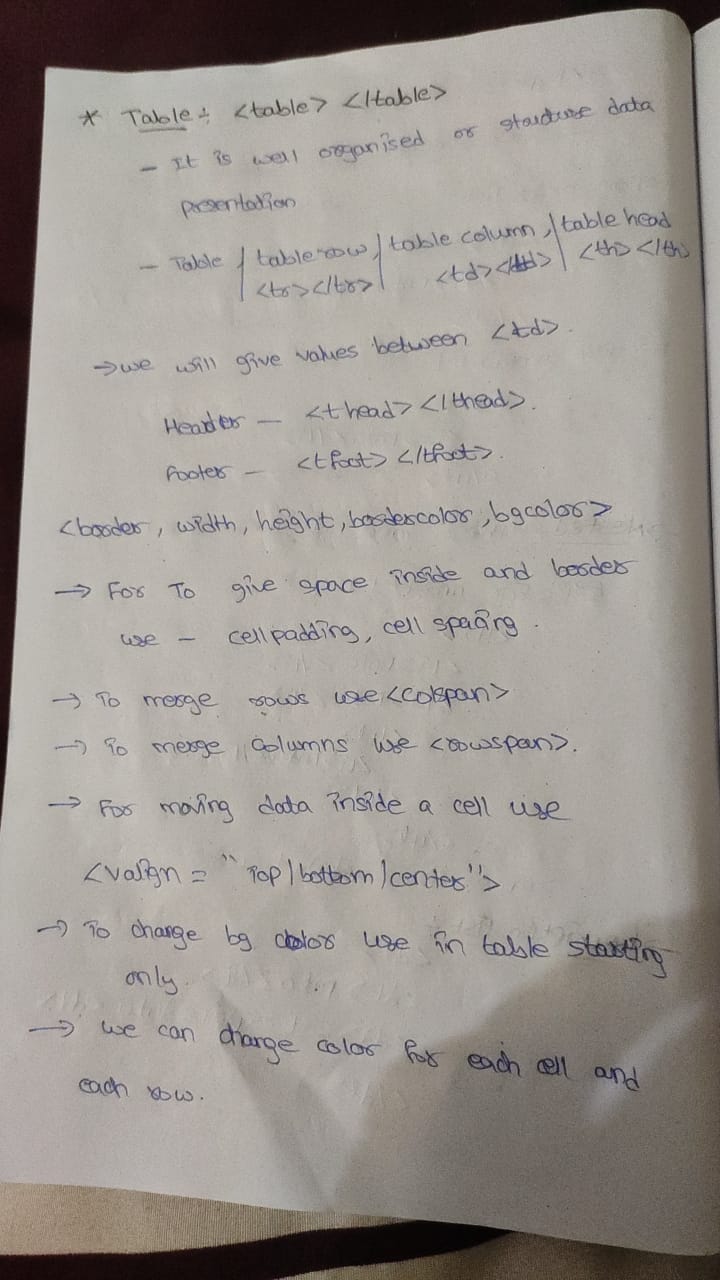 * Table ÷ <table> </table>
- It is well organised or starduse data
presentation
- Table / table row / table column / table head
<tr></tr> <td></td> <th></th>
→ we will give values between <td>.
Header - <thead></thead>.
Footer - <tfoot></tfoot>.
<border, width, height, bordercolor, bgcolor>
→ For To give space inside and border
use - cellpadding, cell spacing.
→ To merge rows use <colspan>
→ To merge columns use <rowspan>.
→ For moving data inside a cell use
<valign = "Top/bottom/center">
→ To change bg color use in table starting
only.
→ we can change color for each cell and
each row.